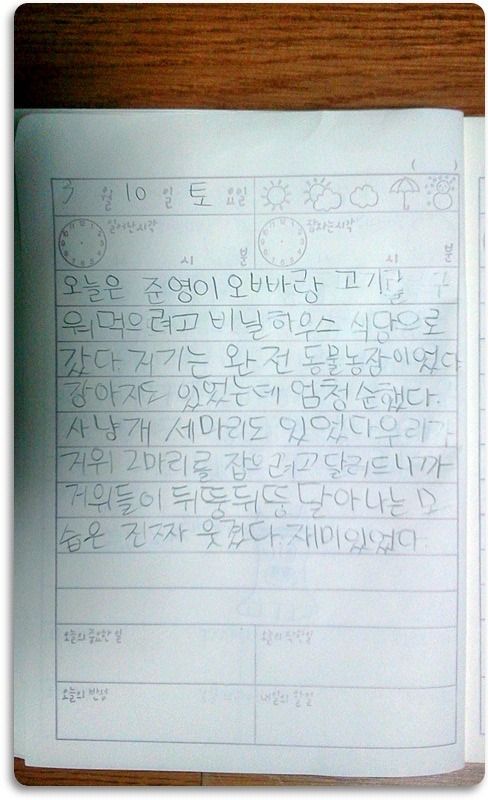 ( )
3 월 10 일 토 요일
일어난시각 시 분 잠자는시각 시 분
오늘은 준영이 오빠랑 고기를 구
워먹으려고 비닐하우스 식당으로
갔다. 저기는 완전 동물농장이었다
강아지도 있었는데 엄청 순했다.
사냥개 세마리도 있었다 우리가
거위 2마리를 잡으려고 달려드니까
거위들이 뒤뚱뒤뚱 달아나는 모
습은 진짜 웃겼다. 재미있었다.
오늘의 중요한 일 오늘의 착한일
오늘의 반성 내일의 할일